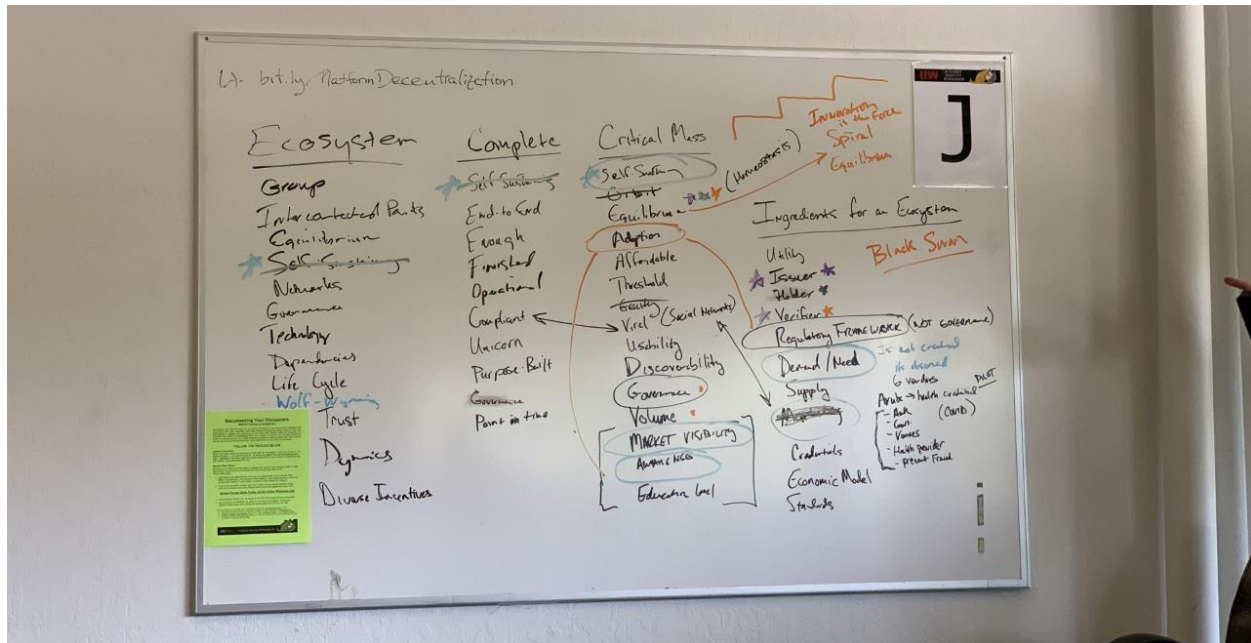 bit.ly/PlatformDecentralization
Ecosystem
Group
Interconnected Parts
Equilibrium
Self-Sustaining
Networks
Governance
Technology
Dependencies
Life Cycle
Trust
Dynamics
Diverse Incentives
Complete
Self-Sustaining
End-to-End
Enough
Finished
Operational
Compliant
Unicorn
Purpose-Built
Governance
Point in time
Critical Mass
Self-Sustaining
Orbit
Equilibrium
(Homeostasis)
Adoption
Affordable
Threshold
Viral (Social Networks)
Usability
Discoverability
Governance
Volume
MARKET VISIBILITY
AWARENESS
Education Level
Innovation
is the Force
Spiral
Equilibrium
Ingredients for an Ecosystem
Black Swan
Utility
Issuer
Holder
Verifier
Regulatory FRAMEWORK (NOT GOVERNANCE)
Demand/Need
Supply
Credentials
Economic Model
Standards
Is not created
its observed
6 vendors
Aruba → health credential
PILOT
(COVID)
- Gov.
- Venues
- Health provider
- prevent Fraud
IIW
J
Documenting Your Discussion
FOLLOW THE PROCESS BELOW